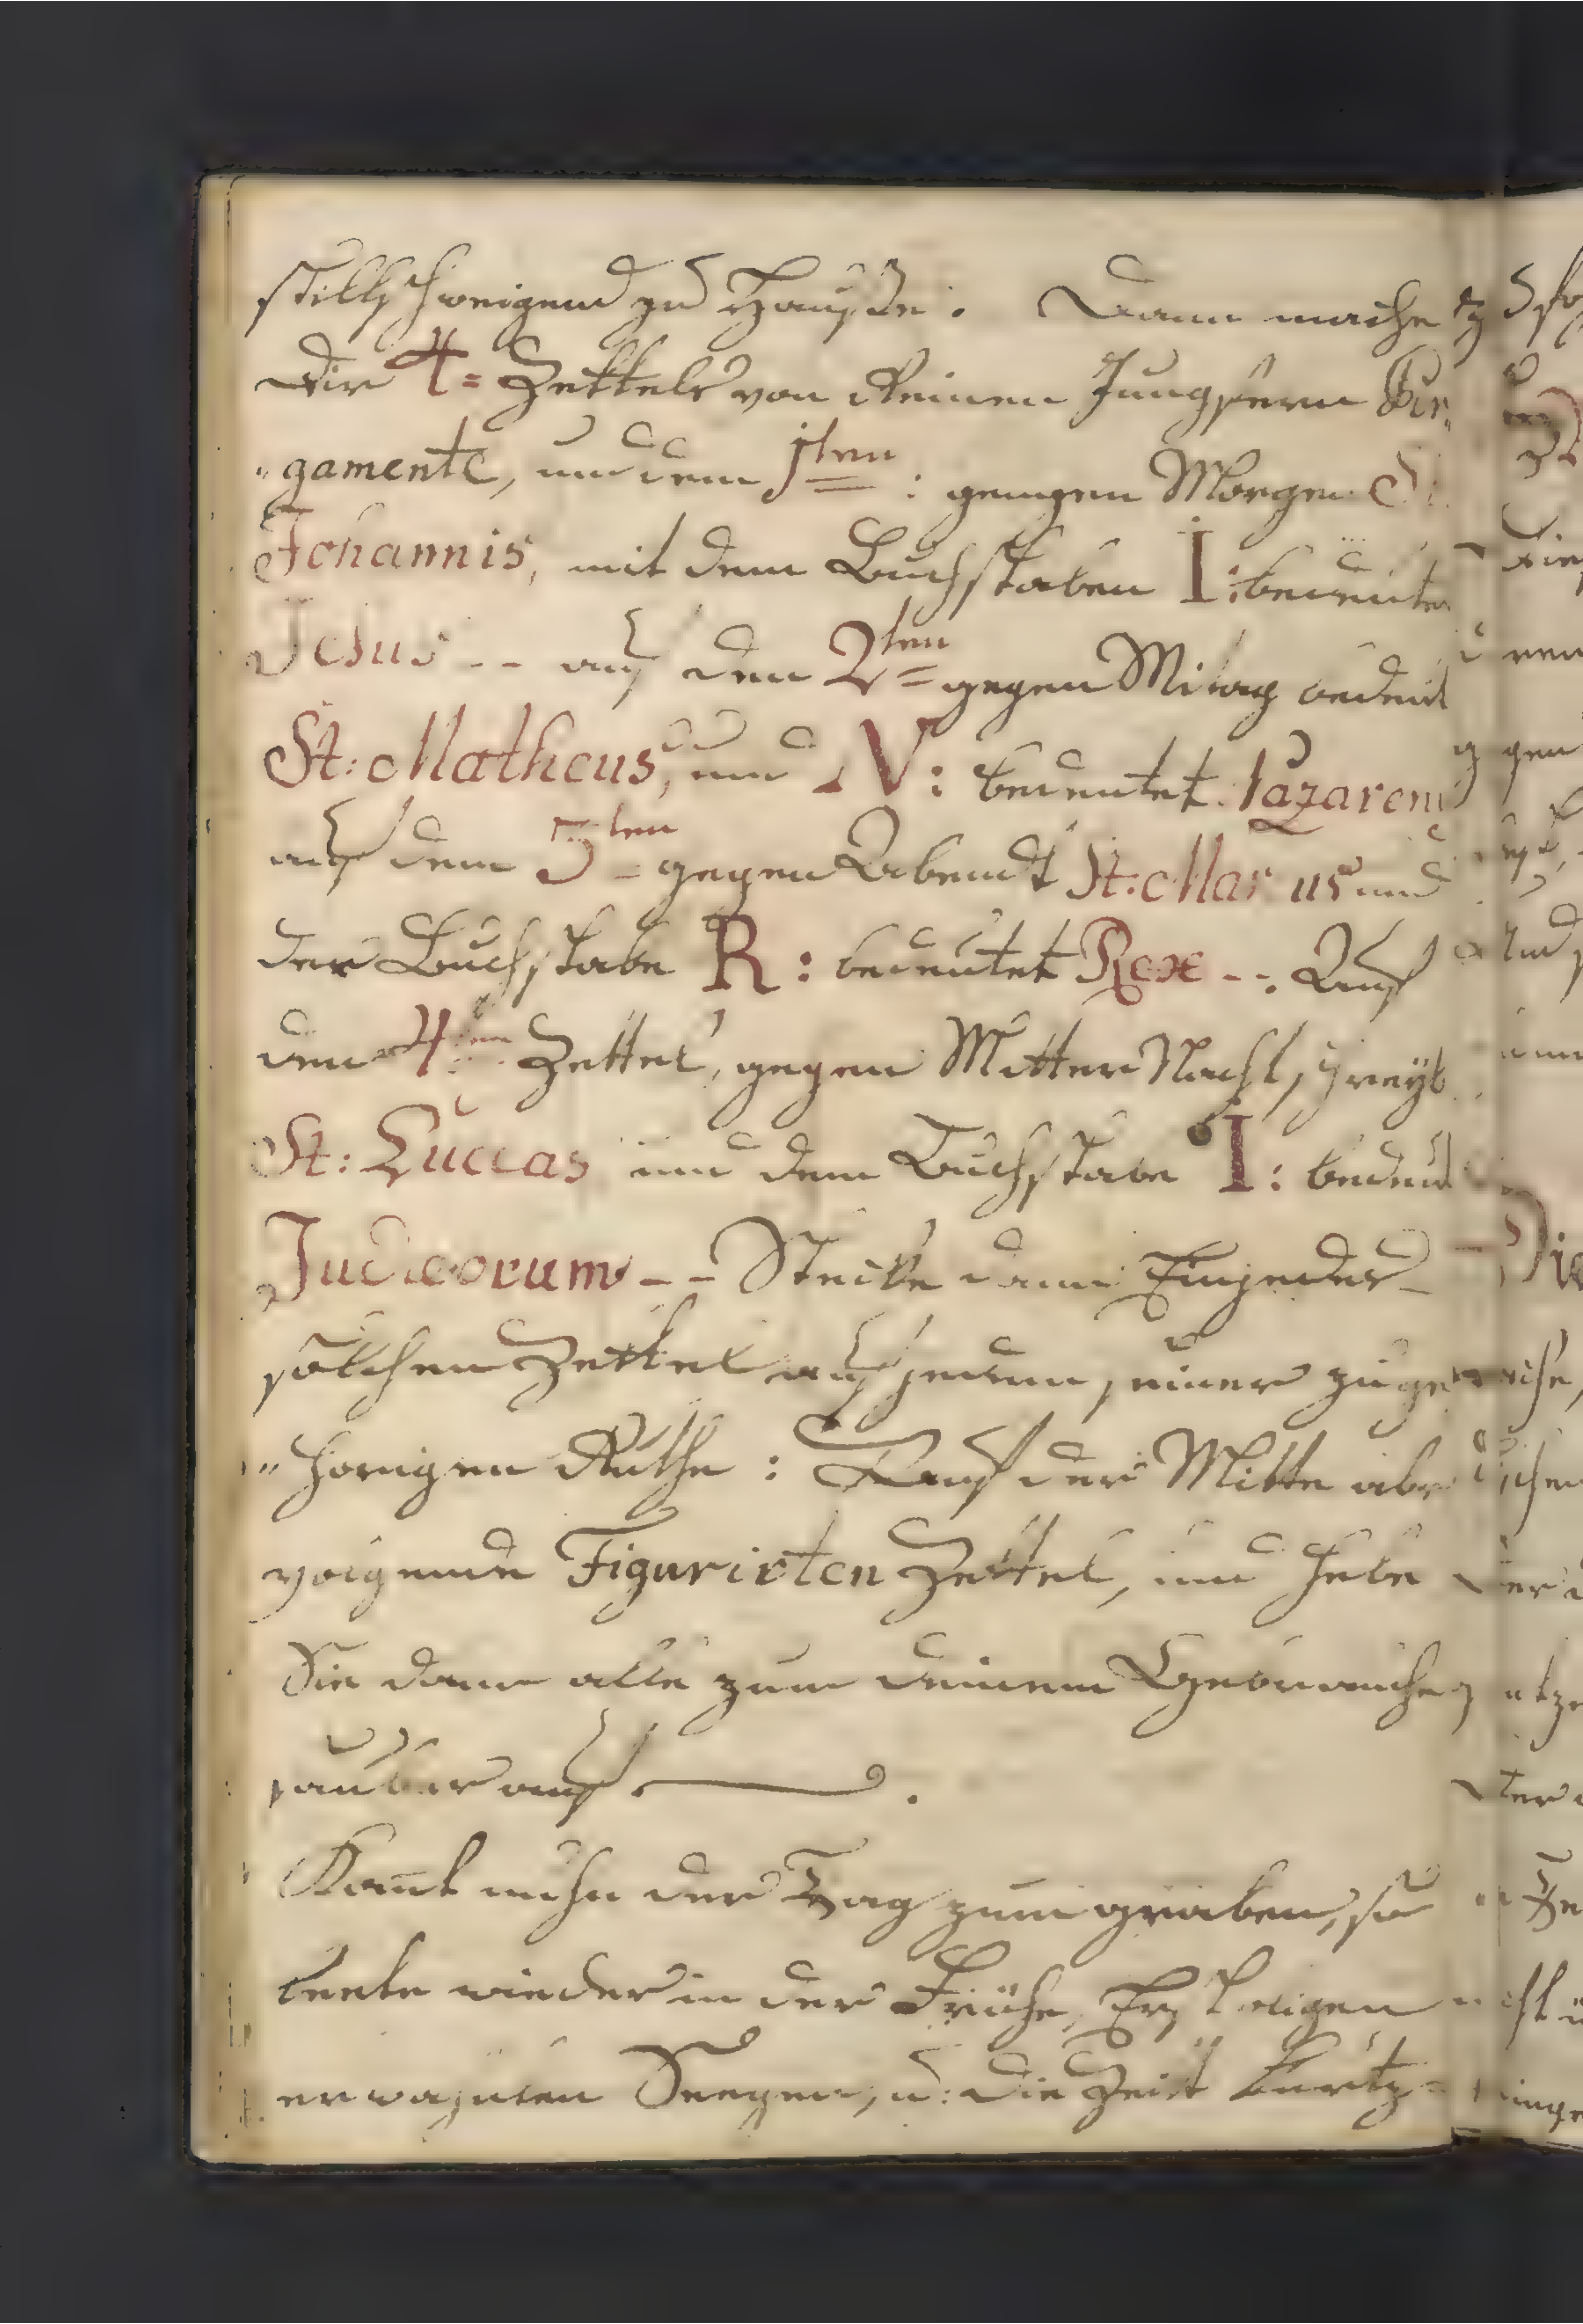 stillschweigend zu Hauße. Dann mache
dir 4= Zettels von Reinen Jungfern Bir„
„gamente, und dem 1ten : gemgem Morgen St.
Johannis, mit dem Buchstaben I: bedeutet
Jesus -- auf den 2ten= gegen Mitag bedeut
St: Matheus, und N: bedeutet Nazarenu
auf dem 3ten= gegen Abendt St: Mar us und
der Buchstabe R: bedeutet Rex --. Auf
den 4ten Zettel, gegen Mitter Nacht, schreyb
St: Luccas und dem Buchstabe I: bedeut
Judæorum -- Stecke dann Einjeder
solchen Zettel auf jedem, seiner zuge
„hörigen Ruthe: Auf der Mitte aber
volgende Figurirten Zettel, und hebe
Sie dann alle zum deinem Gebrauche
sauber auf .
Komt nuhn der Tag zum graben, so
beete wieder in der Frühe,
erwähnten Seegen, u: die Zeit kurtz=